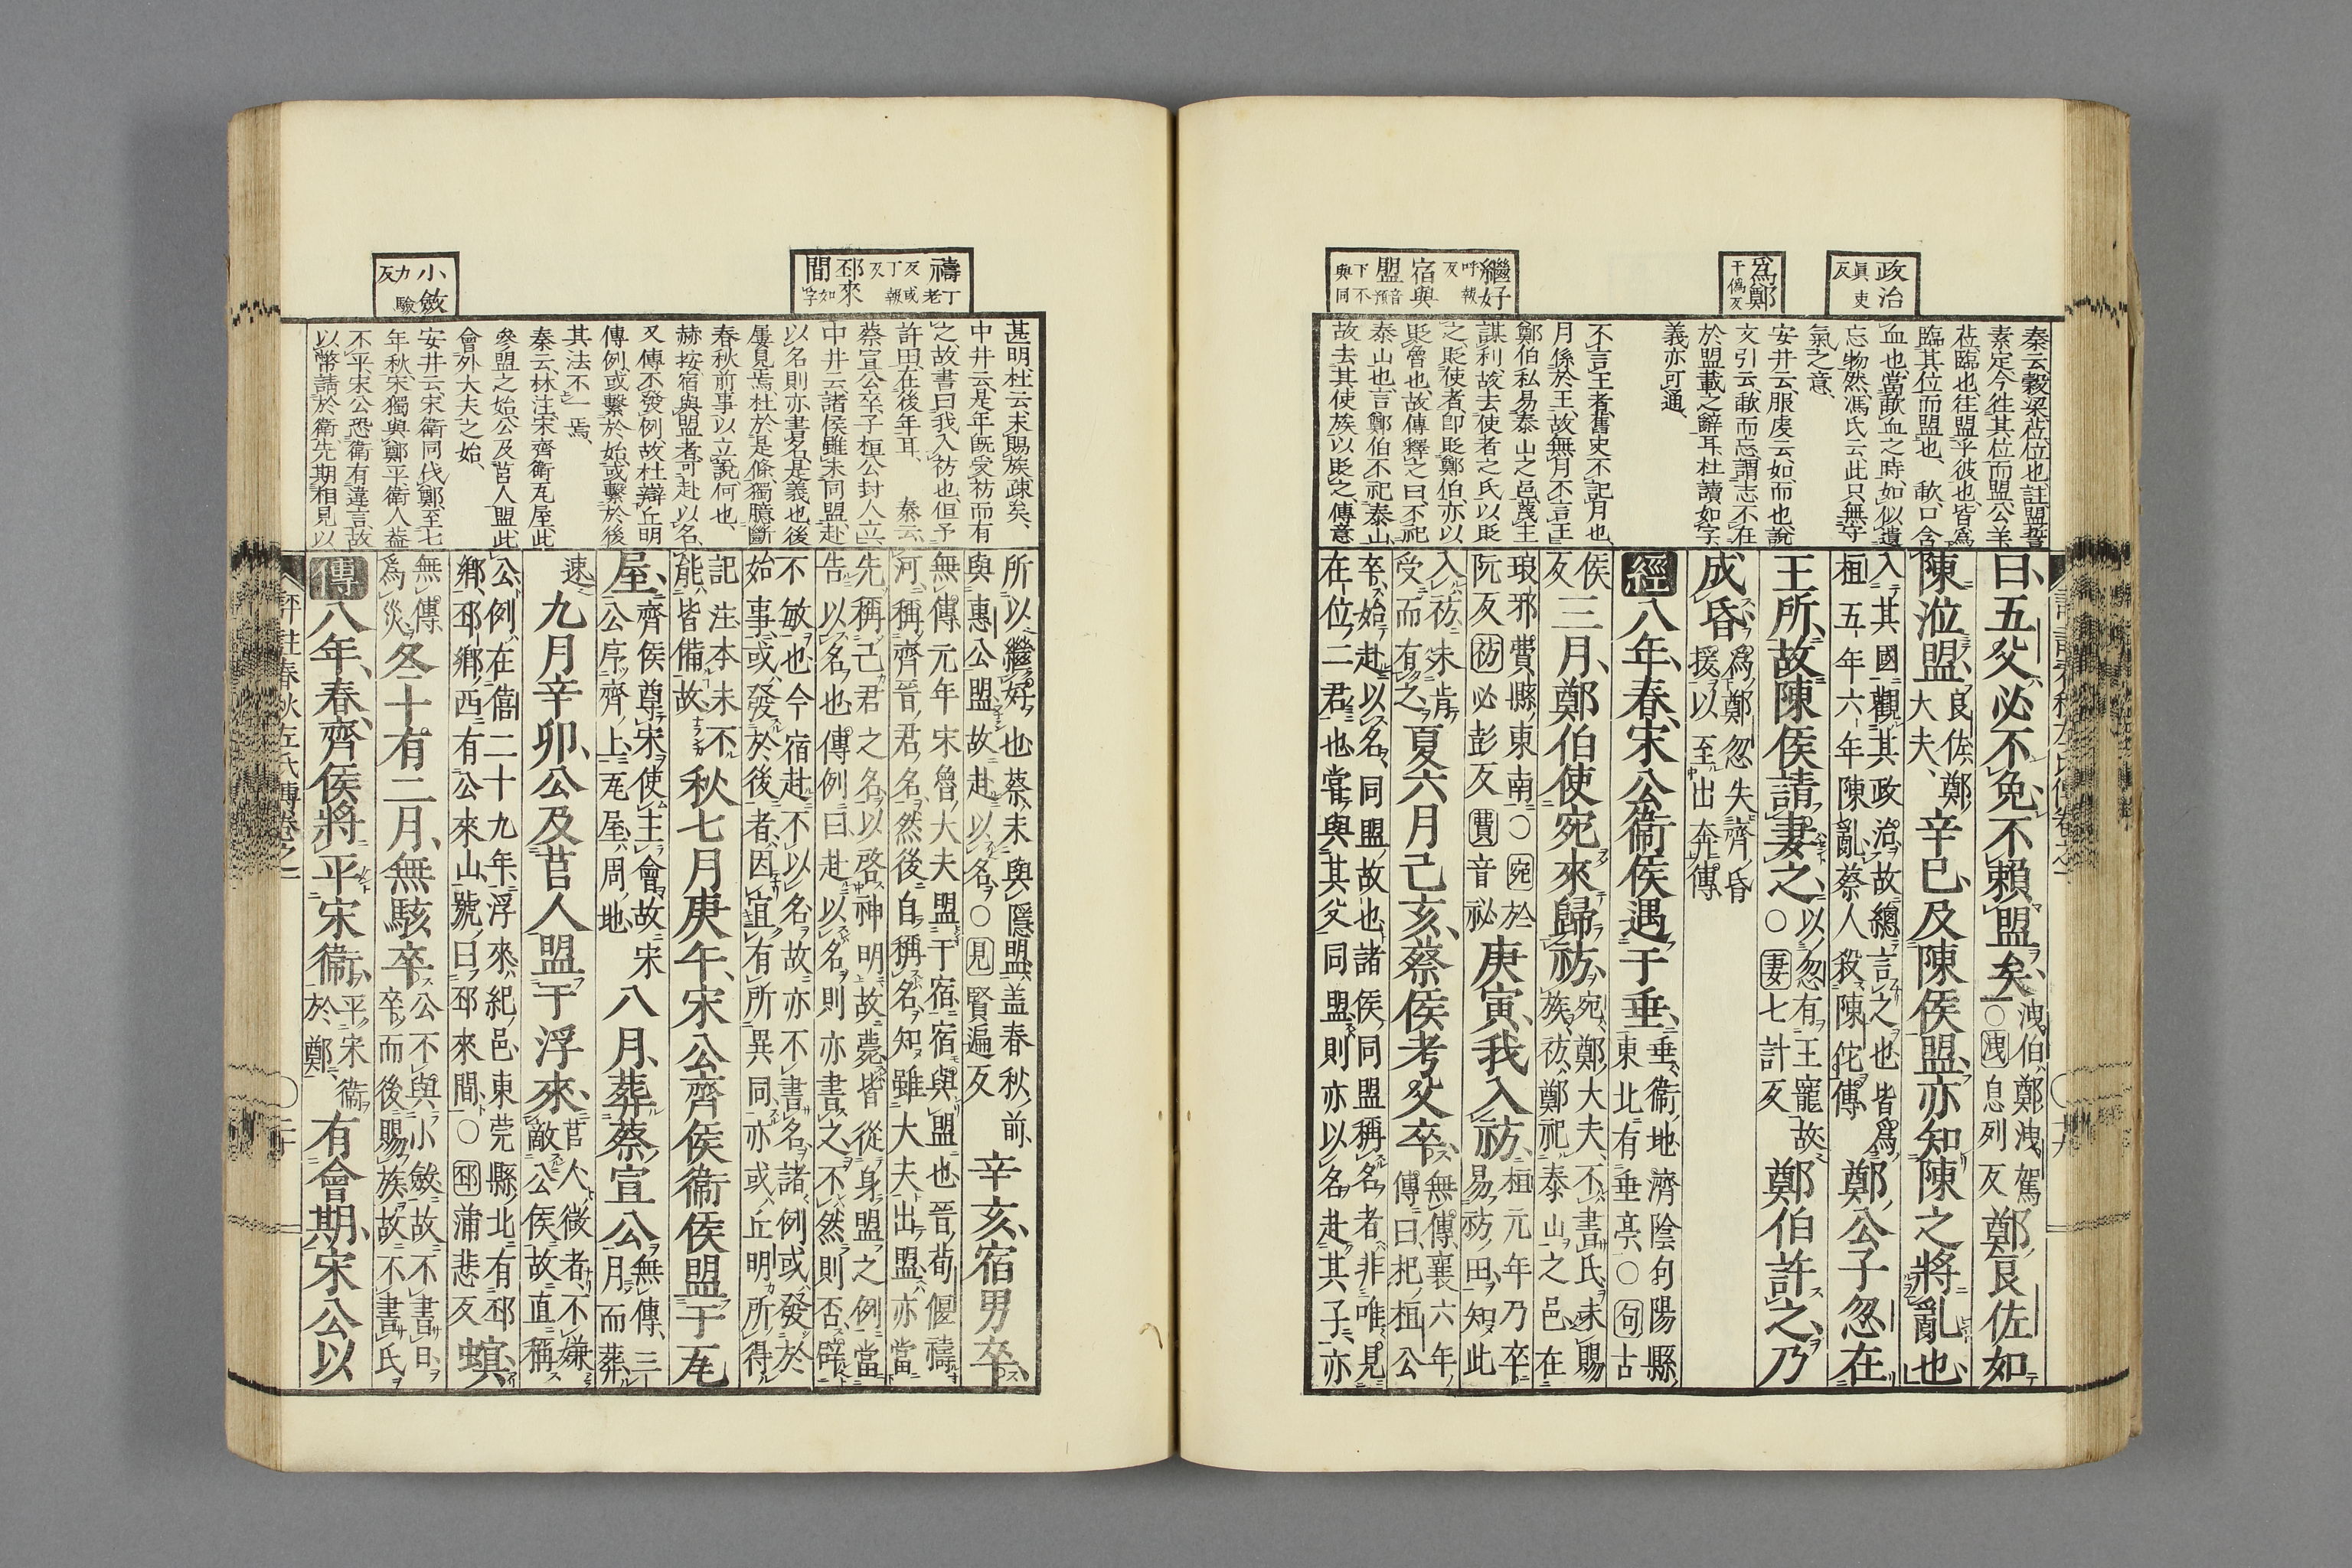 政治
眞吏
反
爲鄭
于僞反
繼好
呼報
反
宿與
盟
音預
下不
與同
秦云、穀梁、莅、位也、註、盟誓
素定今徃其位而盟、公羊
莅、臨也、往盟乎彼也、皆爲
臨其位而盟也、歃、口含
血也、當歃血之時、如似遺
忘物然、馮氏云此只無守
氣之意、
安井云、服虔云如、而也、說
文引云歃而忘、謂志不在
於盟載之辭耳、杜讀如字、
義亦可通、
不言王者、舊史不記月也、
月係於王、故無月不言王
鄭伯私易泰山之邑、蔑王
謀利、故去使者之氏以貶
之、貶使者、卽貶鄭伯、亦以
貶魯也、故傳釋之曰、不祀
泰山也、言鄭伯不祀泰山、
故去其使族以貶之、傳意
曰、五父必不免、不賴盟矣、洩伯、鄭洩駕 ○洩息列反 鄭良佐如
陳涖盟、良佐、鄭大夫、辛巳、及陳侯盟、亦知陳之將亂也、
入其國、觀其政治、故總言之也、皆爲桓五年六年陳亂蔡人殺陳佗傳 鄭公子忽在
王所、故陳侯請妻之、以忽有王寵故 ○妻七計反 鄭伯許之、乃
成昏、爲鄭忽失齊昏援以至出奔傳
經八年、春、宋公衞侯遇于垂、垂、衞地、濟陰句陽縣東北有垂亭、○句古
侯反 三月、鄭伯使宛來歸祊、宛、鄭大夫、不書氏、未賜族、祊、鄭祀泰山之邑、在
琅邪費縣東南○宛於阮反祊必彭反費音祕 庚寅、我入祊、桓元年乃卒易祊田、知此
入祊、未肯受而有之、夏六月己亥、蔡侯考父卒、無傳、襄六年、傳曰、杞桓公
卒、始赴以名、同盟故也、諸侯同盟稱名者、非唯見
在位二君也、嘗與其父同盟、則亦以名赴其子、亦
禱
丁老
反或
丁報
反
邳來
間
如字
小斂
力驗
反
甚明、杜云未賜族疎矣、
中井云、是年旣受祊而有
之、故書曰我入祊也、但予
許田、在後年耳、秦云、
蔡宣公卒、子桓公封人立
中井云、諸侯雖未同盟、赴
以名則亦書名、是義也、後
屢見焉、杜於是條、獨臆斷
春秋前事以立說、何也、
赫按、宿與盟者、可赴以名
又傳不發例、故杜辯丘明
傳例、或繫於始、或繫於後
其法不一焉、
秦云、林注、宋齊衞瓦屋此
參盟之始、公及莒人盟、此
會外大夫之始、
安井云、宋衞同伐鄭、至七
年秋、宋獨與鄭平、衞人蓋
不平、宋公恐衞有違言、故
以幣請於衞先期相見、以
所以繼好也、蔡未與隱盟、盖春秋前、與惠公盟、故赴以名、○見賢遍反 辛亥、宿男卒、
無傳、元年宋魯大夫盟于宿、宿與盟也、晉荀偃禱河、稱齊晉君名、然後自稱名、知雖大夫出盟、亦當
先稱己君之名以啓神明、故薨皆從身盟之例、當告以名也、傳例曰、赴以名則亦書之、不然則否、辟
不敏也、今宿赴不以名、故亦不書名、諸例或發於始事、或發於後者、因宜有所異同、亦或丘明所得
記注本末不能皆備故 秋七月庚午、宋公齊侯衞侯盟于瓦
屋、齊侯尊宋使主會、故宋公序齊上、瓦屋、周地 八月、葬蔡宣公、無傳、三月而葬、
速 九月辛卯、公及莒人盟于浮來、莒人、微者、不嫌敵公侯、故直稱
公、例在僖二十九年、浮來、紀邑、東莞縣北有邳鄕、邳鄕西有公來山、號曰邳來間、○邳蒲悲反 螟、
無傳爲災 冬十有二月、無駭卒、公不與小斂、故不書日、卒而後賜族、故不書氏
傳八年、春、齊侯將平宋衞、平宋衞於鄭 有會期、宋公以
評註春秋左氏傳卷之一
二十